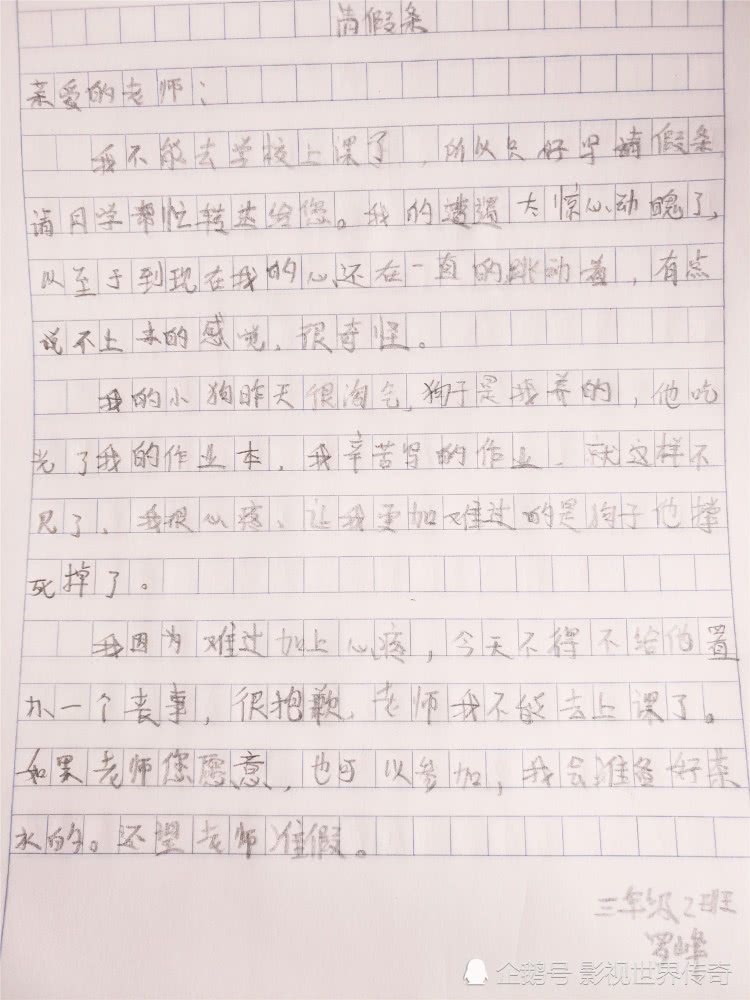 请假条
亲爱的老师：
我不能去学校上课了，所以只好写请假条，
请同学帮忙转达给您。我的遭遇太惊心动魄了，
以至于到现在我的心还在一直的跳动着，有点
说不上来的感觉，很奇怪。
我的小狗昨天很淘气，狗子是我养的，他吃
光了我的作业本，我辛苦写的作业，就这样不
见了，我很心疼、让我更加难过的是狗子他撑
死掉了。
我因为难过加上心疼，今天不得不给他置
办一个丧事，很抱歉，老师我不能去上课了。
如果老师您愿意，也可以参加，我会准备好茶
水的。还望老师准假。
三年级2班
罗峰
企鹅号 影视世界传奇